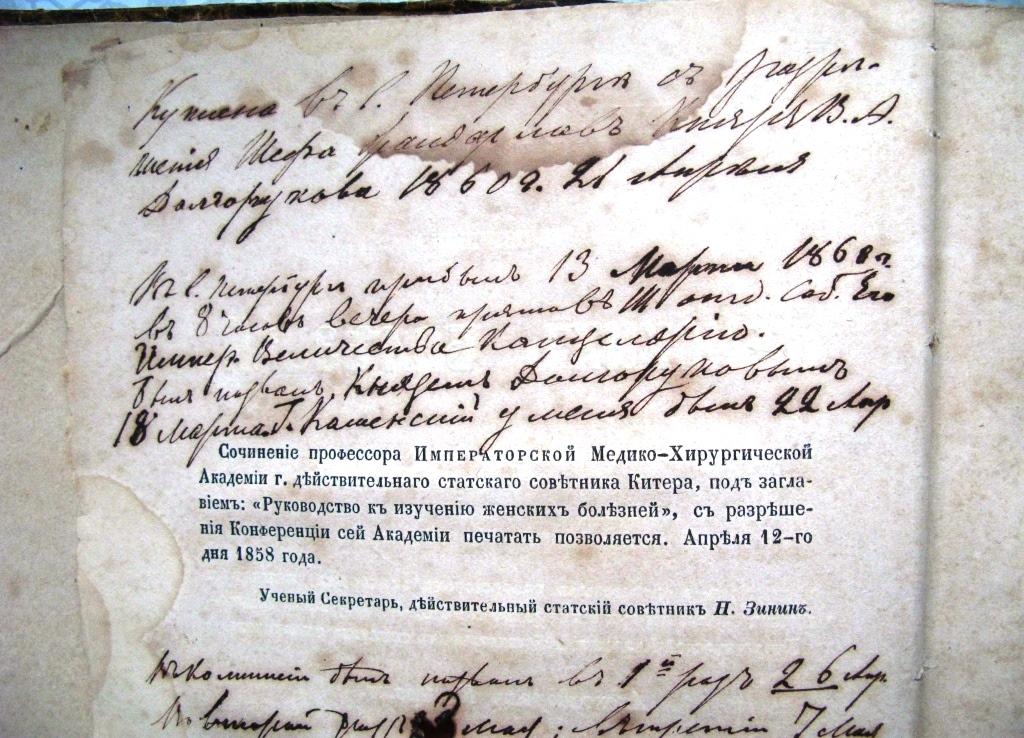 Куплена въ С. Петербургѣ съ разрѣ-
шенія Шефа жандармовъ Князя В. А.
Долгорукова 1860 г. 21 Апрѣля
Въ С. Петербургъ прибылъ 13 Марта 1860 г.
въ 8 часовъ вечера прямо въ III отд. Соб. Его
Импер. Величества Канцелярію.
былъ позванъ Княземъ Долгоруковымъ
18 марта. Каменскій у меня былъ 22 Апр
Сочиненіе профессора Императорской Медико-Хирургической
Академіи г. дѣйствительнаго статскаго совѣтника Китера, подъ загла-
віемъ: «Руководство къ изученію женскихъ болѣзней», съ разрѣше-
нія Конференціи сей Академіи печатать позволяется. Апрѣля 12-го
дня 1858 года.
Ученый Секретарь, дѣйствительный статскій совѣтникъ Н. Зининъ.
былъ позванъ въ 1й разъ 26 Апр.
Во второй разъ мая; 7 мая